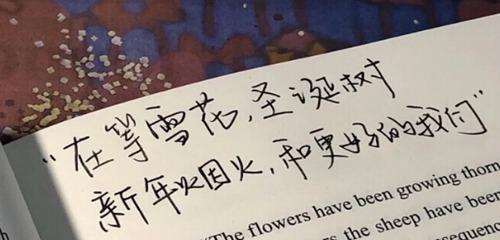 “在等雪花,圣诞树
新年烟火,和更好的我们”
"The flowers have been growing thorn
the sheep have been